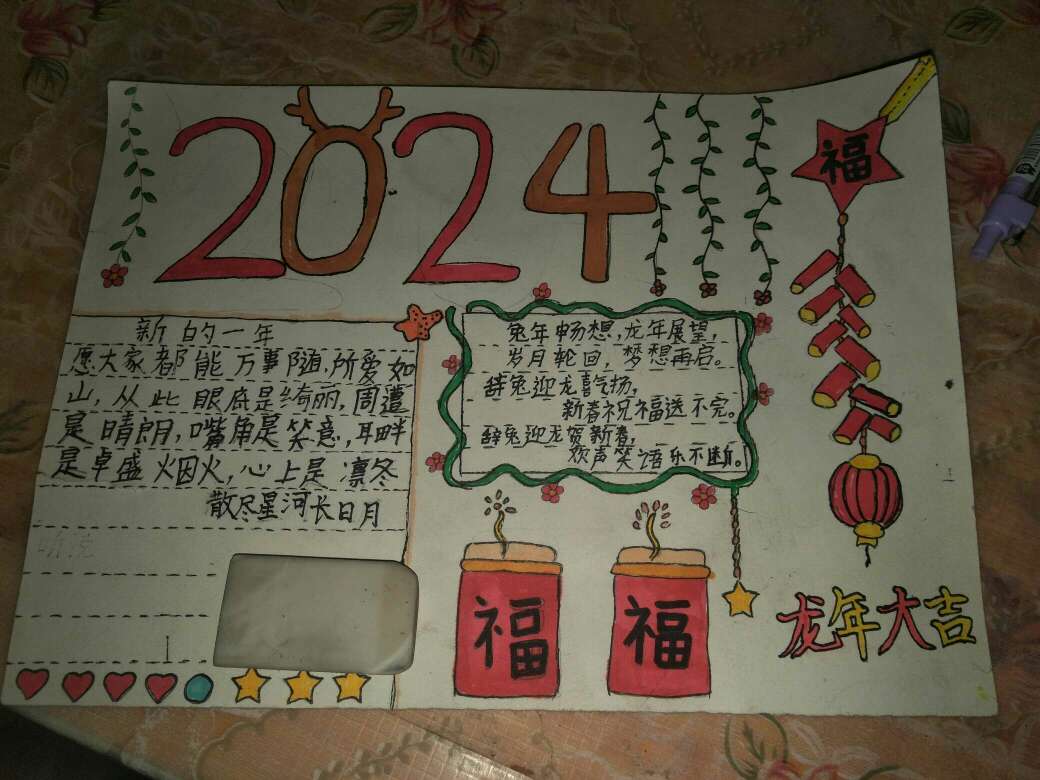 2024
福
新的一年
愿大家都能万事随,所爱如
山,从此眼底是绮丽,周遭
是晴朗,嘴角是笑意,耳畔
是卓盛烟火,心上是凛冬
散尽星河长日月
兔年畅想,龙年展望,
岁月轮回,梦想再启。
辞兔迎龙喜气扬,
新春祝福送不完。
辞兔迎龙贺新春,
欢声笑语乐不断。
福
福
龙年大吉